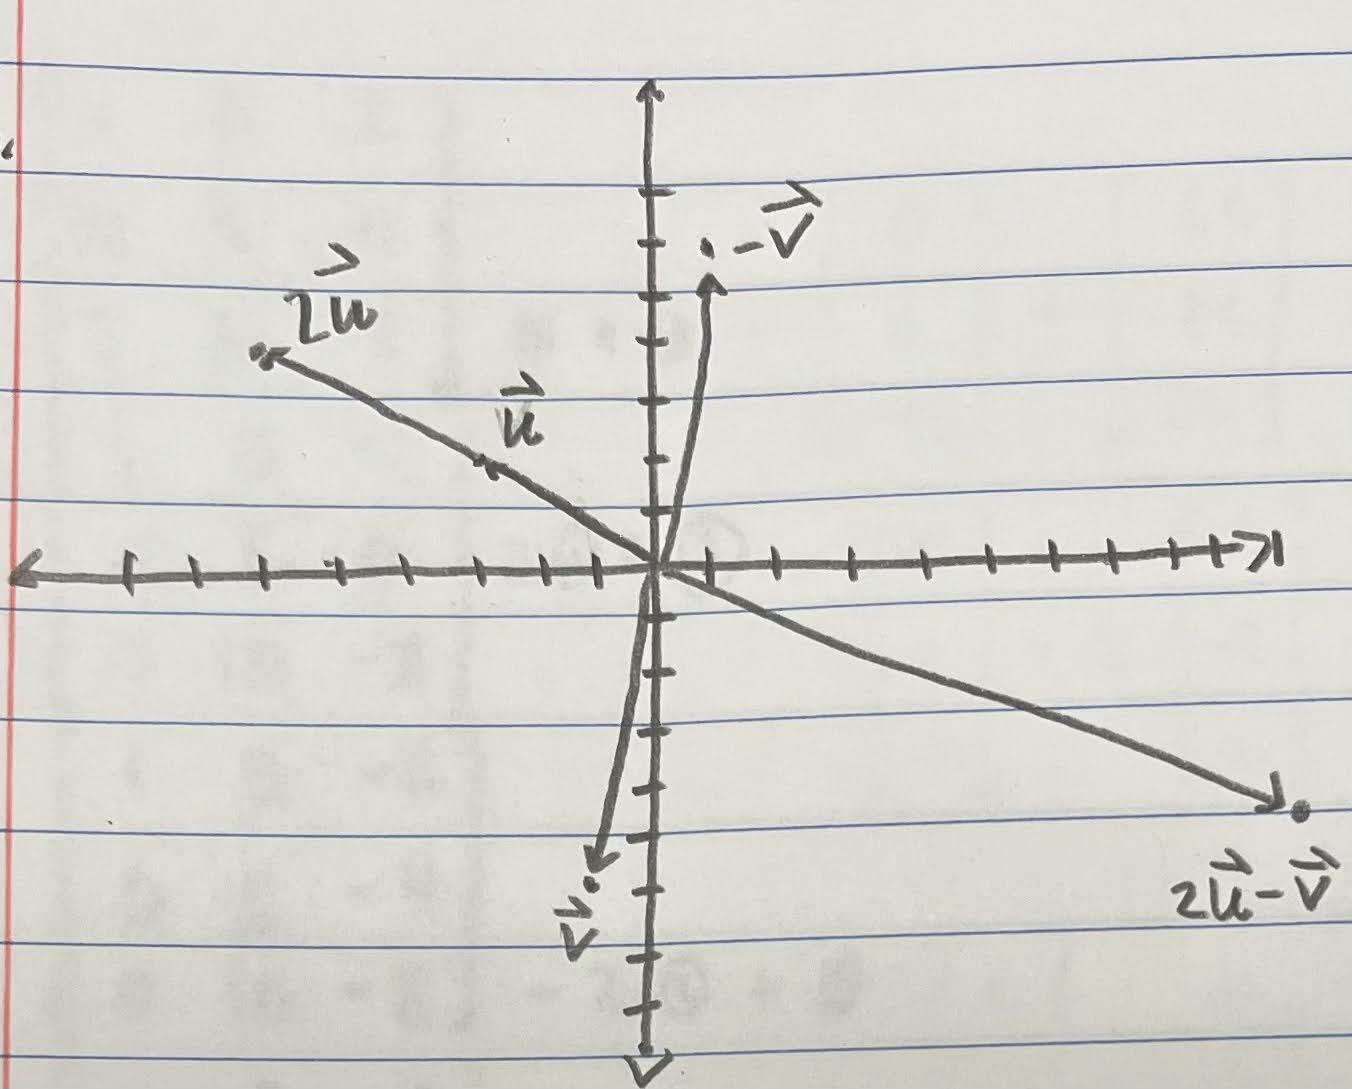 -v⃗
2u⃗
u⃗
v⃗
2u⃗-v⃗